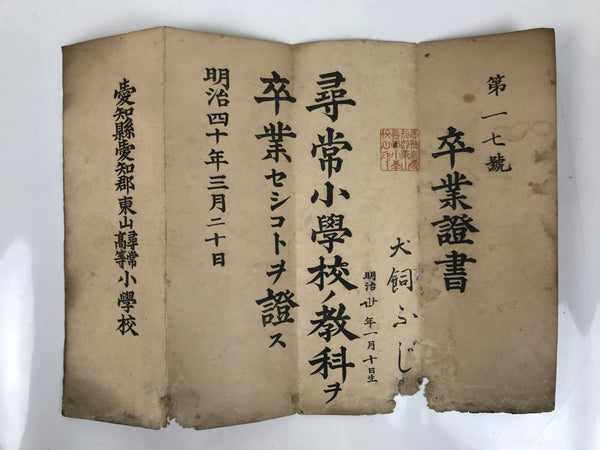 第一七號
卒業證書
犬飼ふじ
明治廿年一月十日生
尋常小學校ノ教科ヲ
卒業セシコトヲ證ス
明治四十年三月二十日
愛知縣愛知郡東山尋常高等小學校